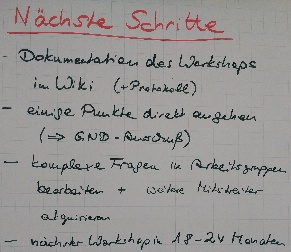 Nächste Schritte
- Dokumentation des Workshops
im Wiki (+Protokoll)
- einige Punkte direkt angehen
(=> GND-Ausschuß)
- komplexe Fragen in Arbeitsgruppen
bearbeiten + weitere Mitstreiter
akquirieren
- nächster Workshop in 18-24 Monaten